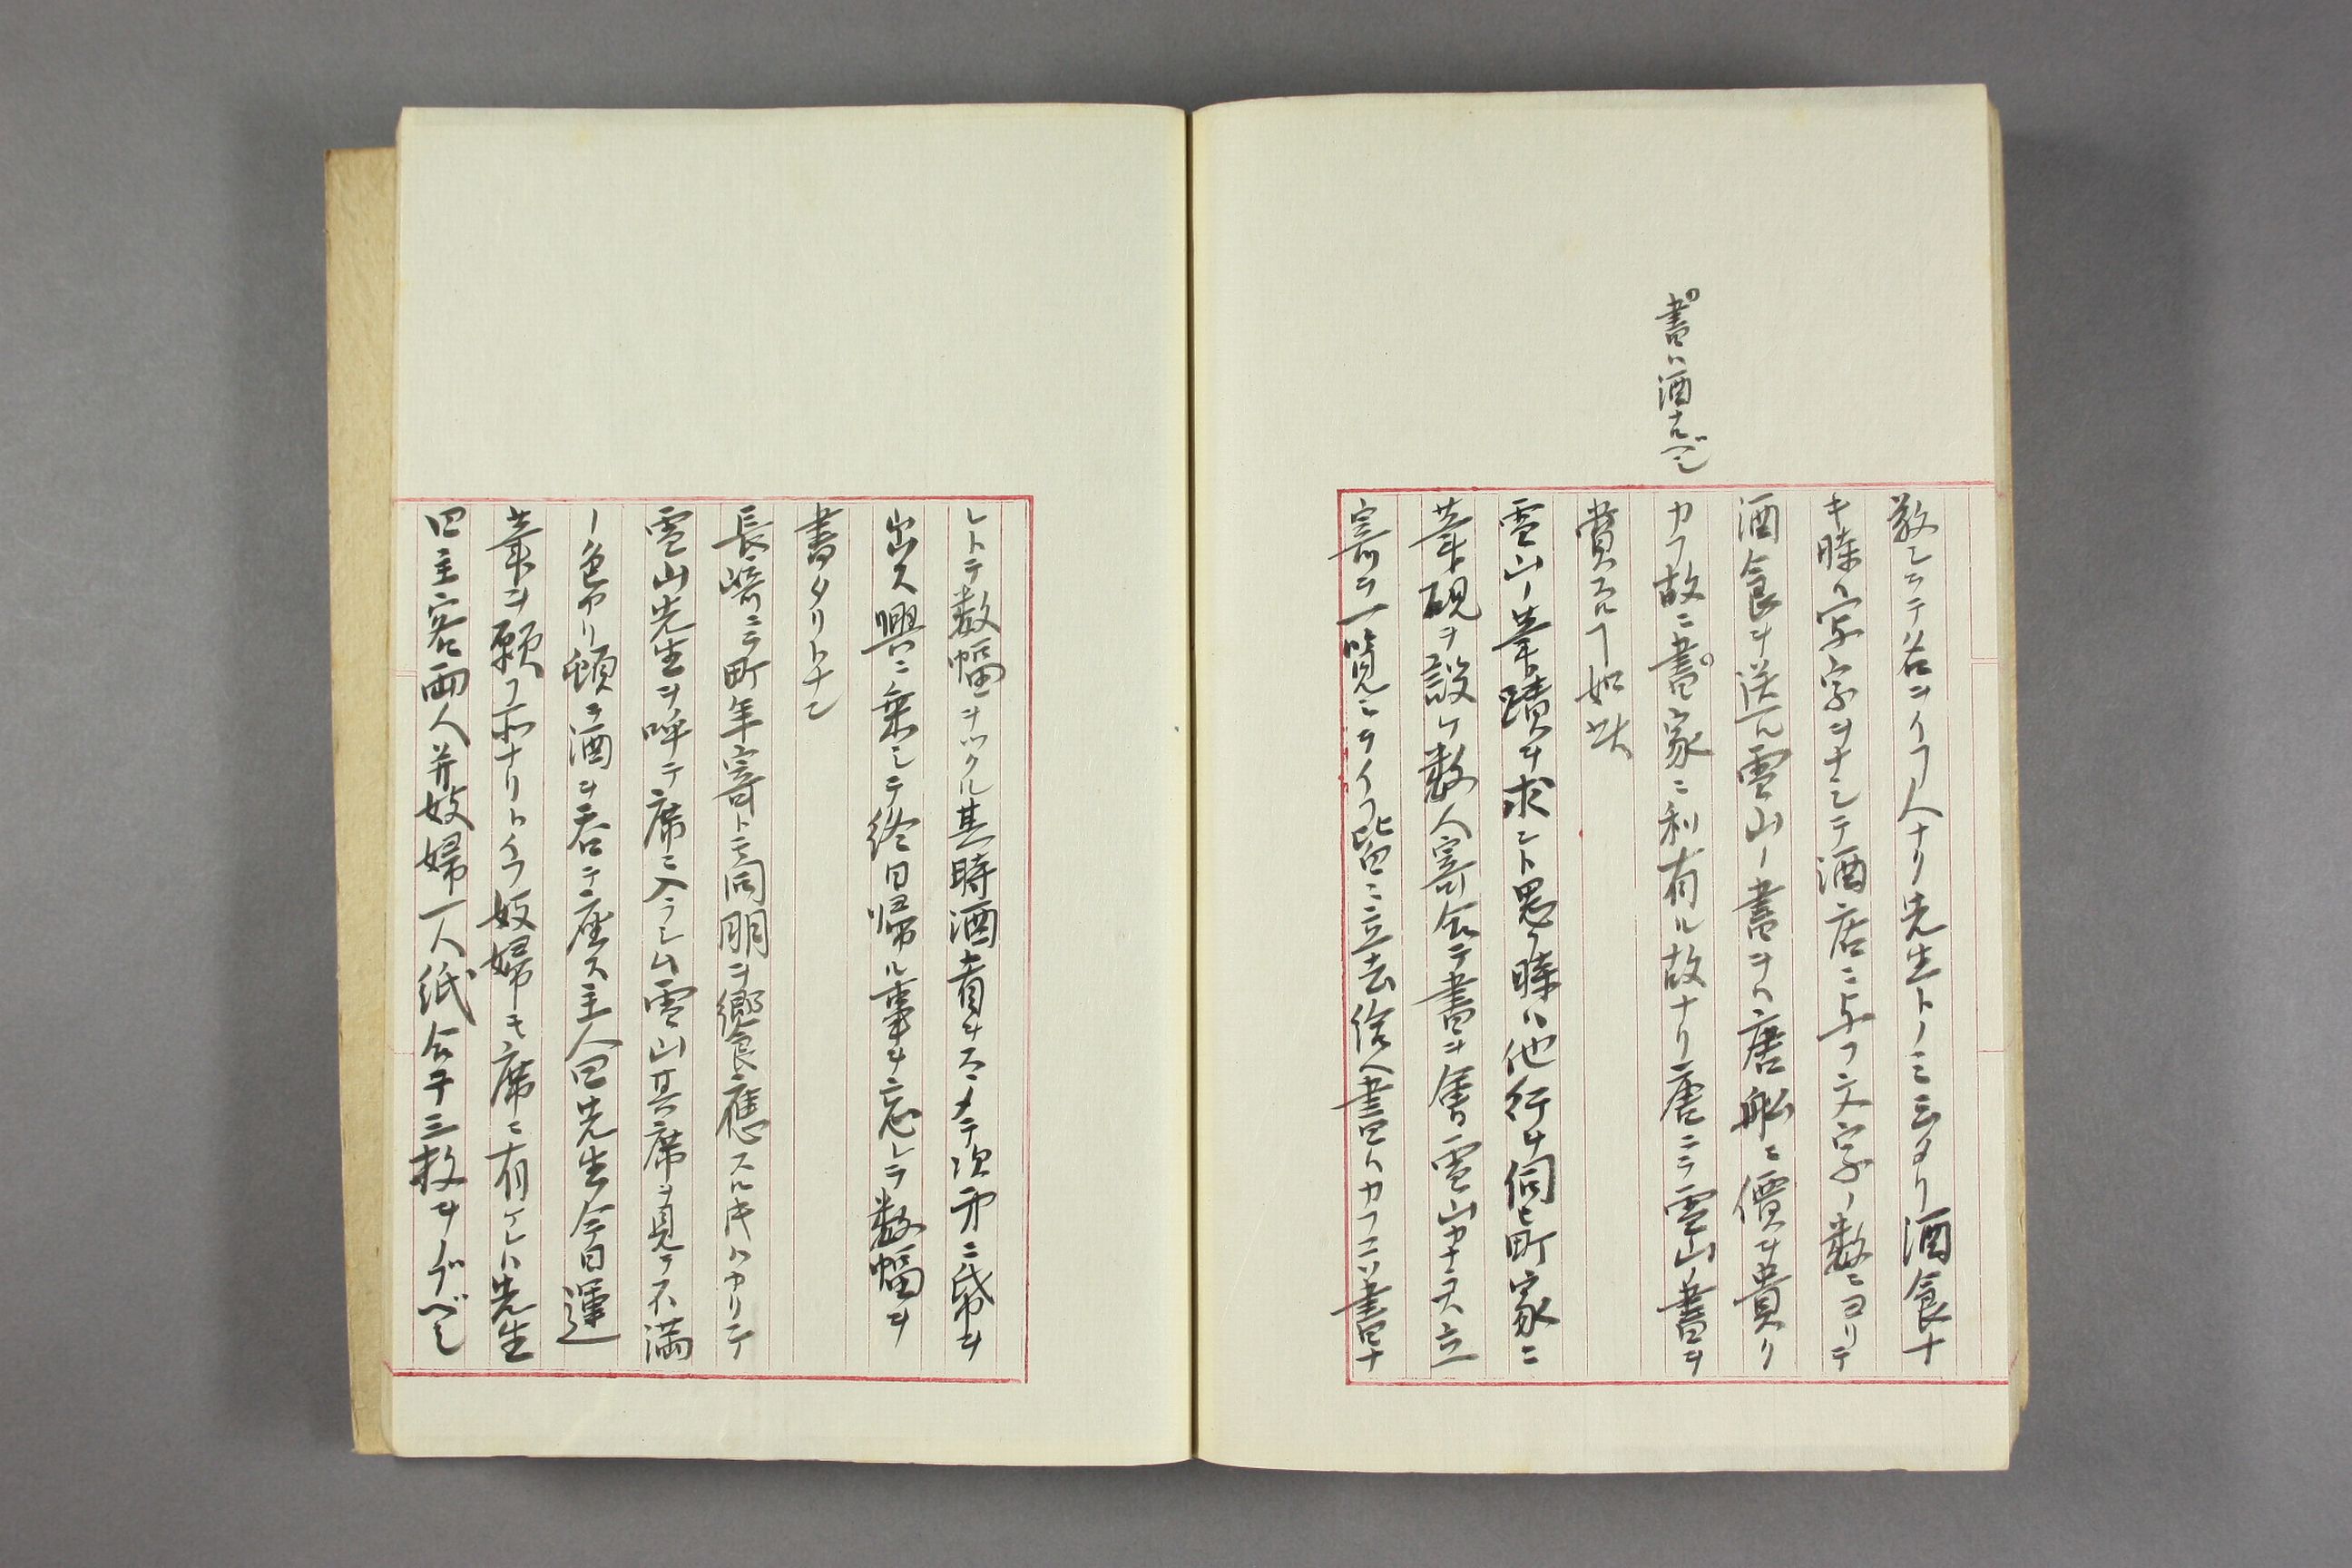 書ハ酒ナルベシ
敬シテ名ヲイフ人ナリ先生トノミ云タリ酒食ナ
キ時ハ字ヲナシテ酒店ニ与フ文字ノ数ニヨリテ
酒食ヲ送ル雪山ノ書ヲハ唐船ニ價ヲ貴ク
カフ故ニ書家ニ利有ル故ナリ唐ニテ雪山ノ書ヲ
賞スルヿ如此
雪山ノ筆蹟ヲ求ント思フ時ハ他行ヲ伺ヒ町家ニ
筆硯ヲ設ケ数人寄合テ書ヲ書雪山カナラス立
寄テ一覧シテイフ皆ニ立去給ヘ書ハカフコソ書ナ
レトテ数幅ヲツクル其時酒肴ヲスヽメテ次第ニ帋ヲ
出ス興ニ乗シテ終日帰ル事ヲ忘レテ数幅ヲ
書タリトナン
長崎ニテ町年寄トテ同朋ヲ饗應スル時ハカリテ
雪山先生ヲ呼テ席ニ入ラシム雪山其席ヲ見テ不満
ノ色アリ頓テ酒ヲ呑テ座ス主人曰先生今日運
筆ヲ願フ所ナリトイフ妓婦モ席ニ有ケレハ先生
曰主客両人并妓婦一人紙合テ三枚ヲノブベシ